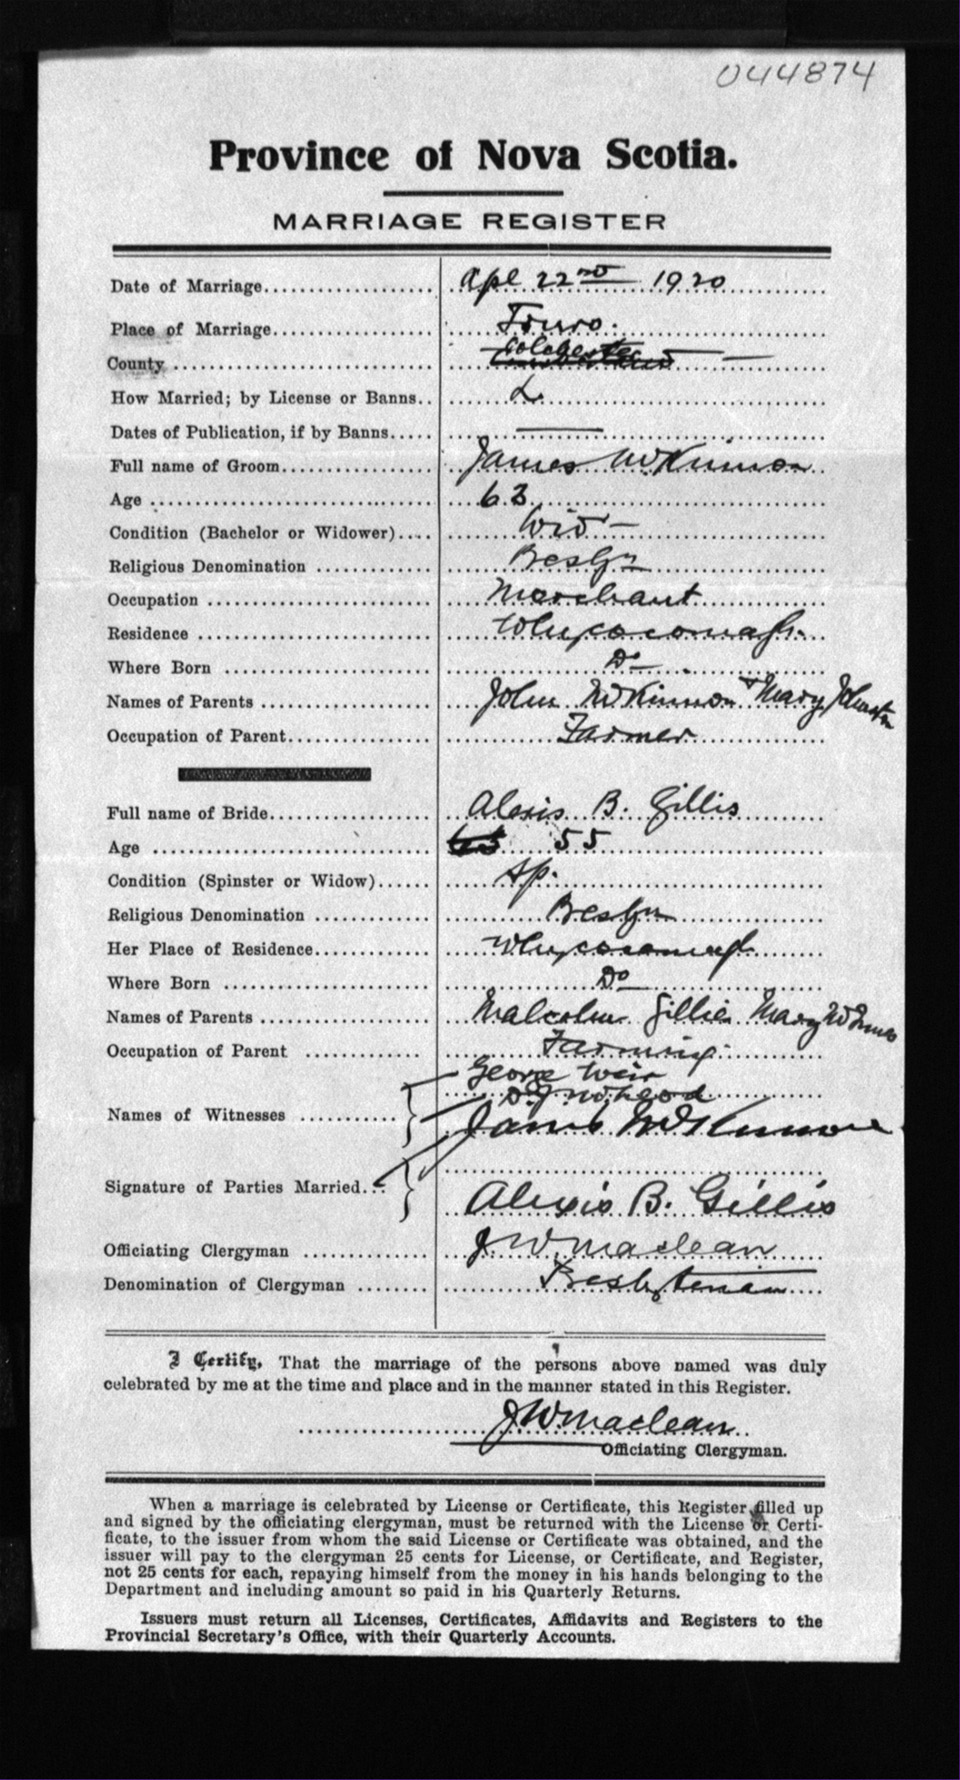 044874
Province of Nova Scotia.
MARRIAGE REGISTER
Date of Marriage Apl 22nd 1920
Place of Marriage Truro.
County Colchester
How Married; by License or Banns L
Dates of Publication, if by Banns —
Full name of Groom James McKinnon
Age 63
Condition (Bachelor or Widower) Wid —
Religious Denomination Presbyn
Occupation Merchant
Residence Whycocomagh.
Where Born Do
Names of Parents John McKinnon + Mary Johnston
Occupation of Parent Farmer
Full name of Bride Alexis B. Gillis
Age 55
Condition (Spinster or Widow) Sp.
Religious Denomination Presbyn
Her Place of Residence Whycocomagh
Where Born Do
Names of Parents Malcolm Gillis Mary
Occupation of Parent Farming
George Weir
Names of Witnesses D. J. McLeod
James McKinnon
Signature of Parties Married
Alexis B. Gillis
Officiating Clergyman J. W. Maclean
Denomination of Clergyman Presbyterian
I Certify, That the marriage of the persons above named was duly
celebrated by me at the time and place and in the manner stated in this Register.
J W Maclean
Officiating Clergyman.
When a marriage is celebrated by License or Certificate, this Register filled up
and signed by the officiating clergyman, must be returned with the License or Certi-
ficate, to the issuer from whom the said License or Certificate was obtained, and the
issuer will pay to the clergyman 25 cents for License, or Certificate, and Register,
not 25 cents for each, repaying himself from the money in his hands belonging to the
Department and including amount so paid in his Quarterly Returns.
Issuers must return all Licenses, Certificates, Affidavits and Registers to the
Provincial Secretary's Office, with their Quarterly Accounts.